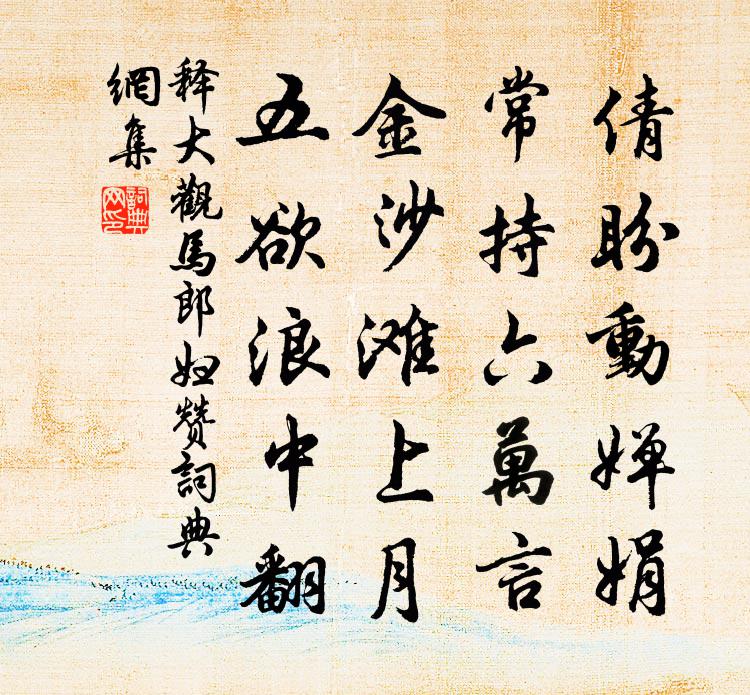 倩盼動婵娟
常持六萬言
金沙滩上月
五欲浪中翻
释大觀馬郎妇赞詞典
網集
詞典
网印